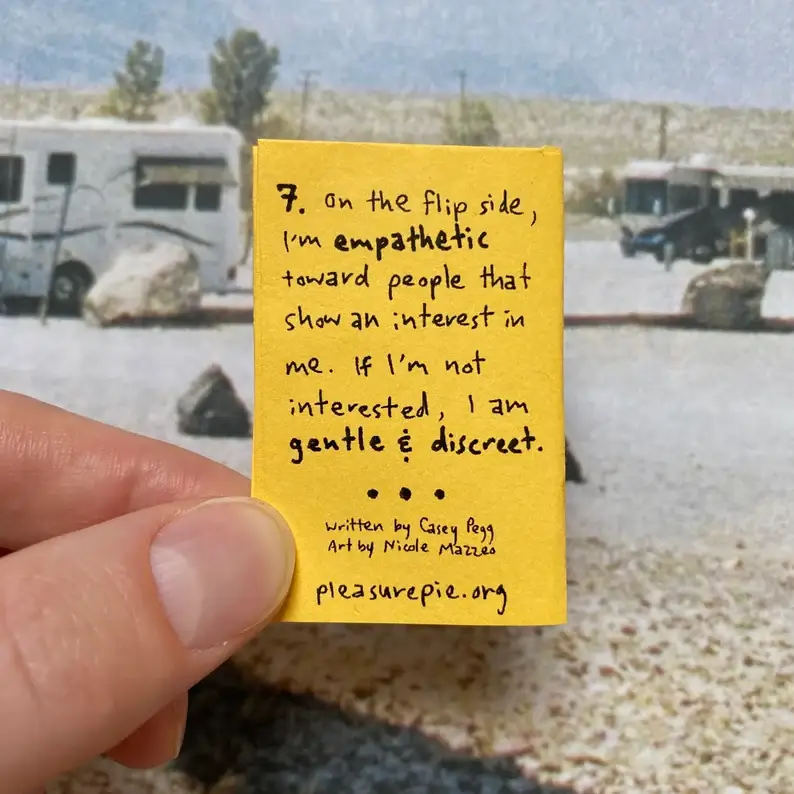 7. On the flip side,
I'm empathetic
toward people that
show an interest in
me. If I'm not
interested, I am
gentle & discreet.
• • •
written by Casey Pegg
Art by Nicole Mazzeo
pleasurepie.org